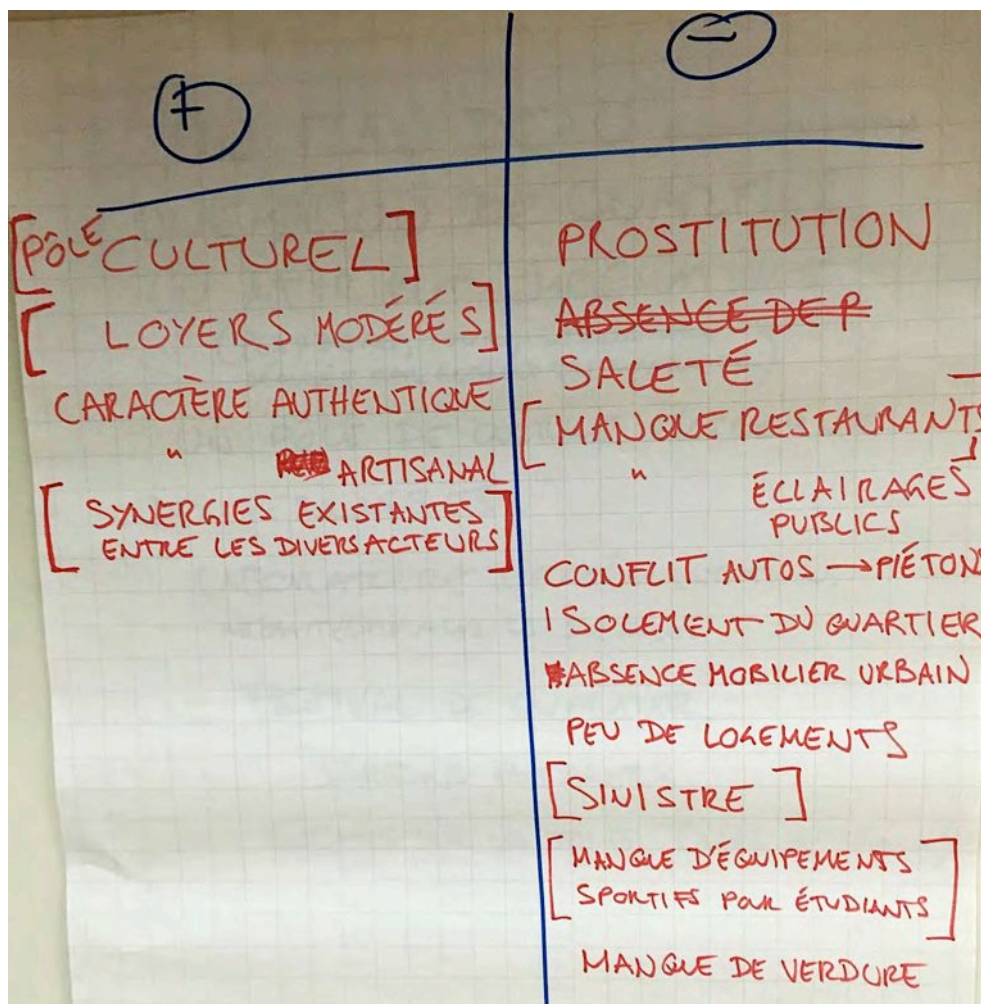 +
[PÔLE CULTUREL]
[LOYERS MODÉRÉS]
CARACTÈRE AUTHENTIQUE
" ARTISANAL
[SYNERGIES EXISTANTES
ENTRE LES DIVERS ACTEURS]
-
PROSTITUTION
ABSENCE DE P
SALETÉ
[MANQUE RESTAURANTS]
" ÉCLAIRAGES
PUBLICS
CONFLIT AUTOS → PIÉTONS
ISOLEMENT DU QUARTIER
ABSENCE MOBILIER URBAIN
PEU DE LOGEMENTS
[SINISTRE]
[MANQUE D'ÉQUIPEMENTS
SPORTIFS POUR ÉTUDIANTS]
MANQUE DE VERDURE